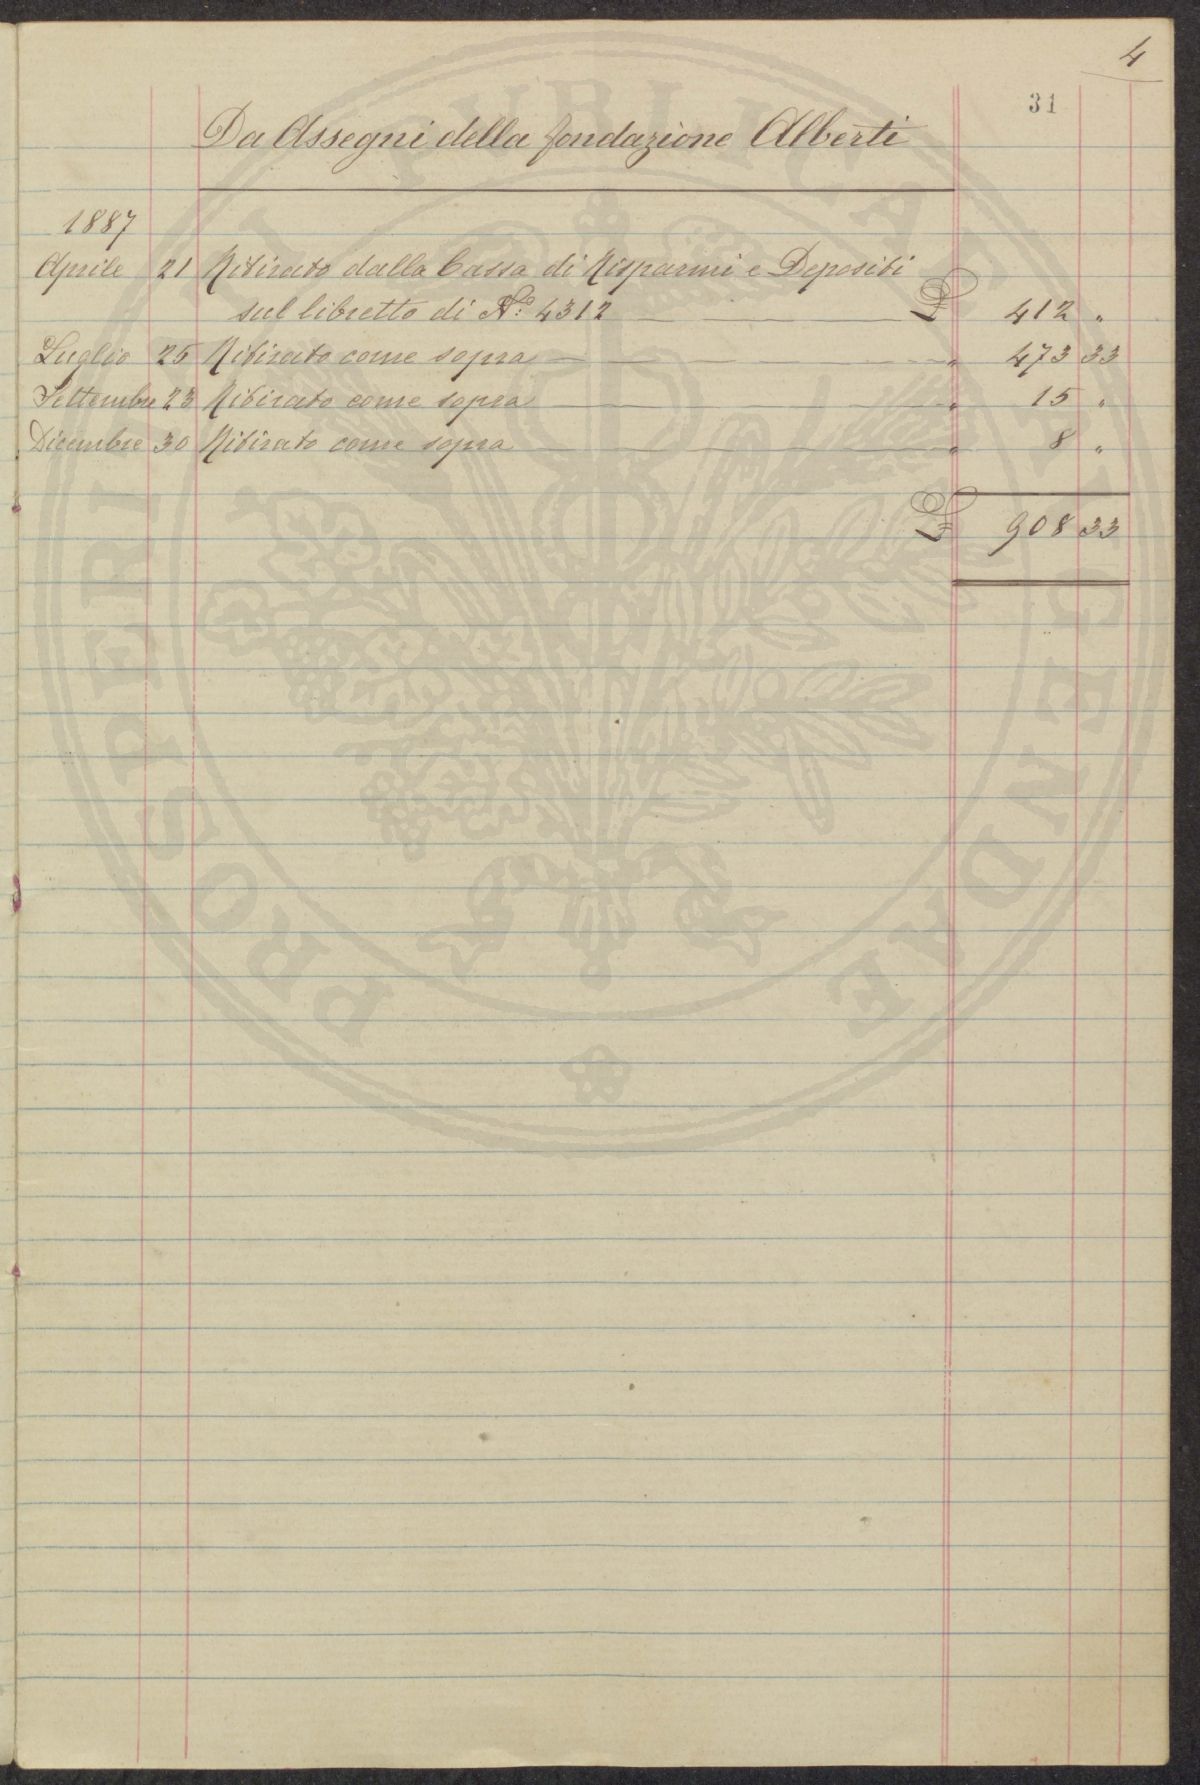 4
31
Da Assegni della fondazione Alberti
1887
Aprile 21 Ritirato dalla Cassa di Risparmi e Depositi
sul libretto di No: 4312 £ 412 "
Luglio 25 Ritirato come sopra " 473 33
Settembre 23 Ritirato come sopra " 15 "
Dicembre 30 Ritirato come sopra " 8 "
£ 908 33
PROSPERITATI PUBLICAE AUGENDAE